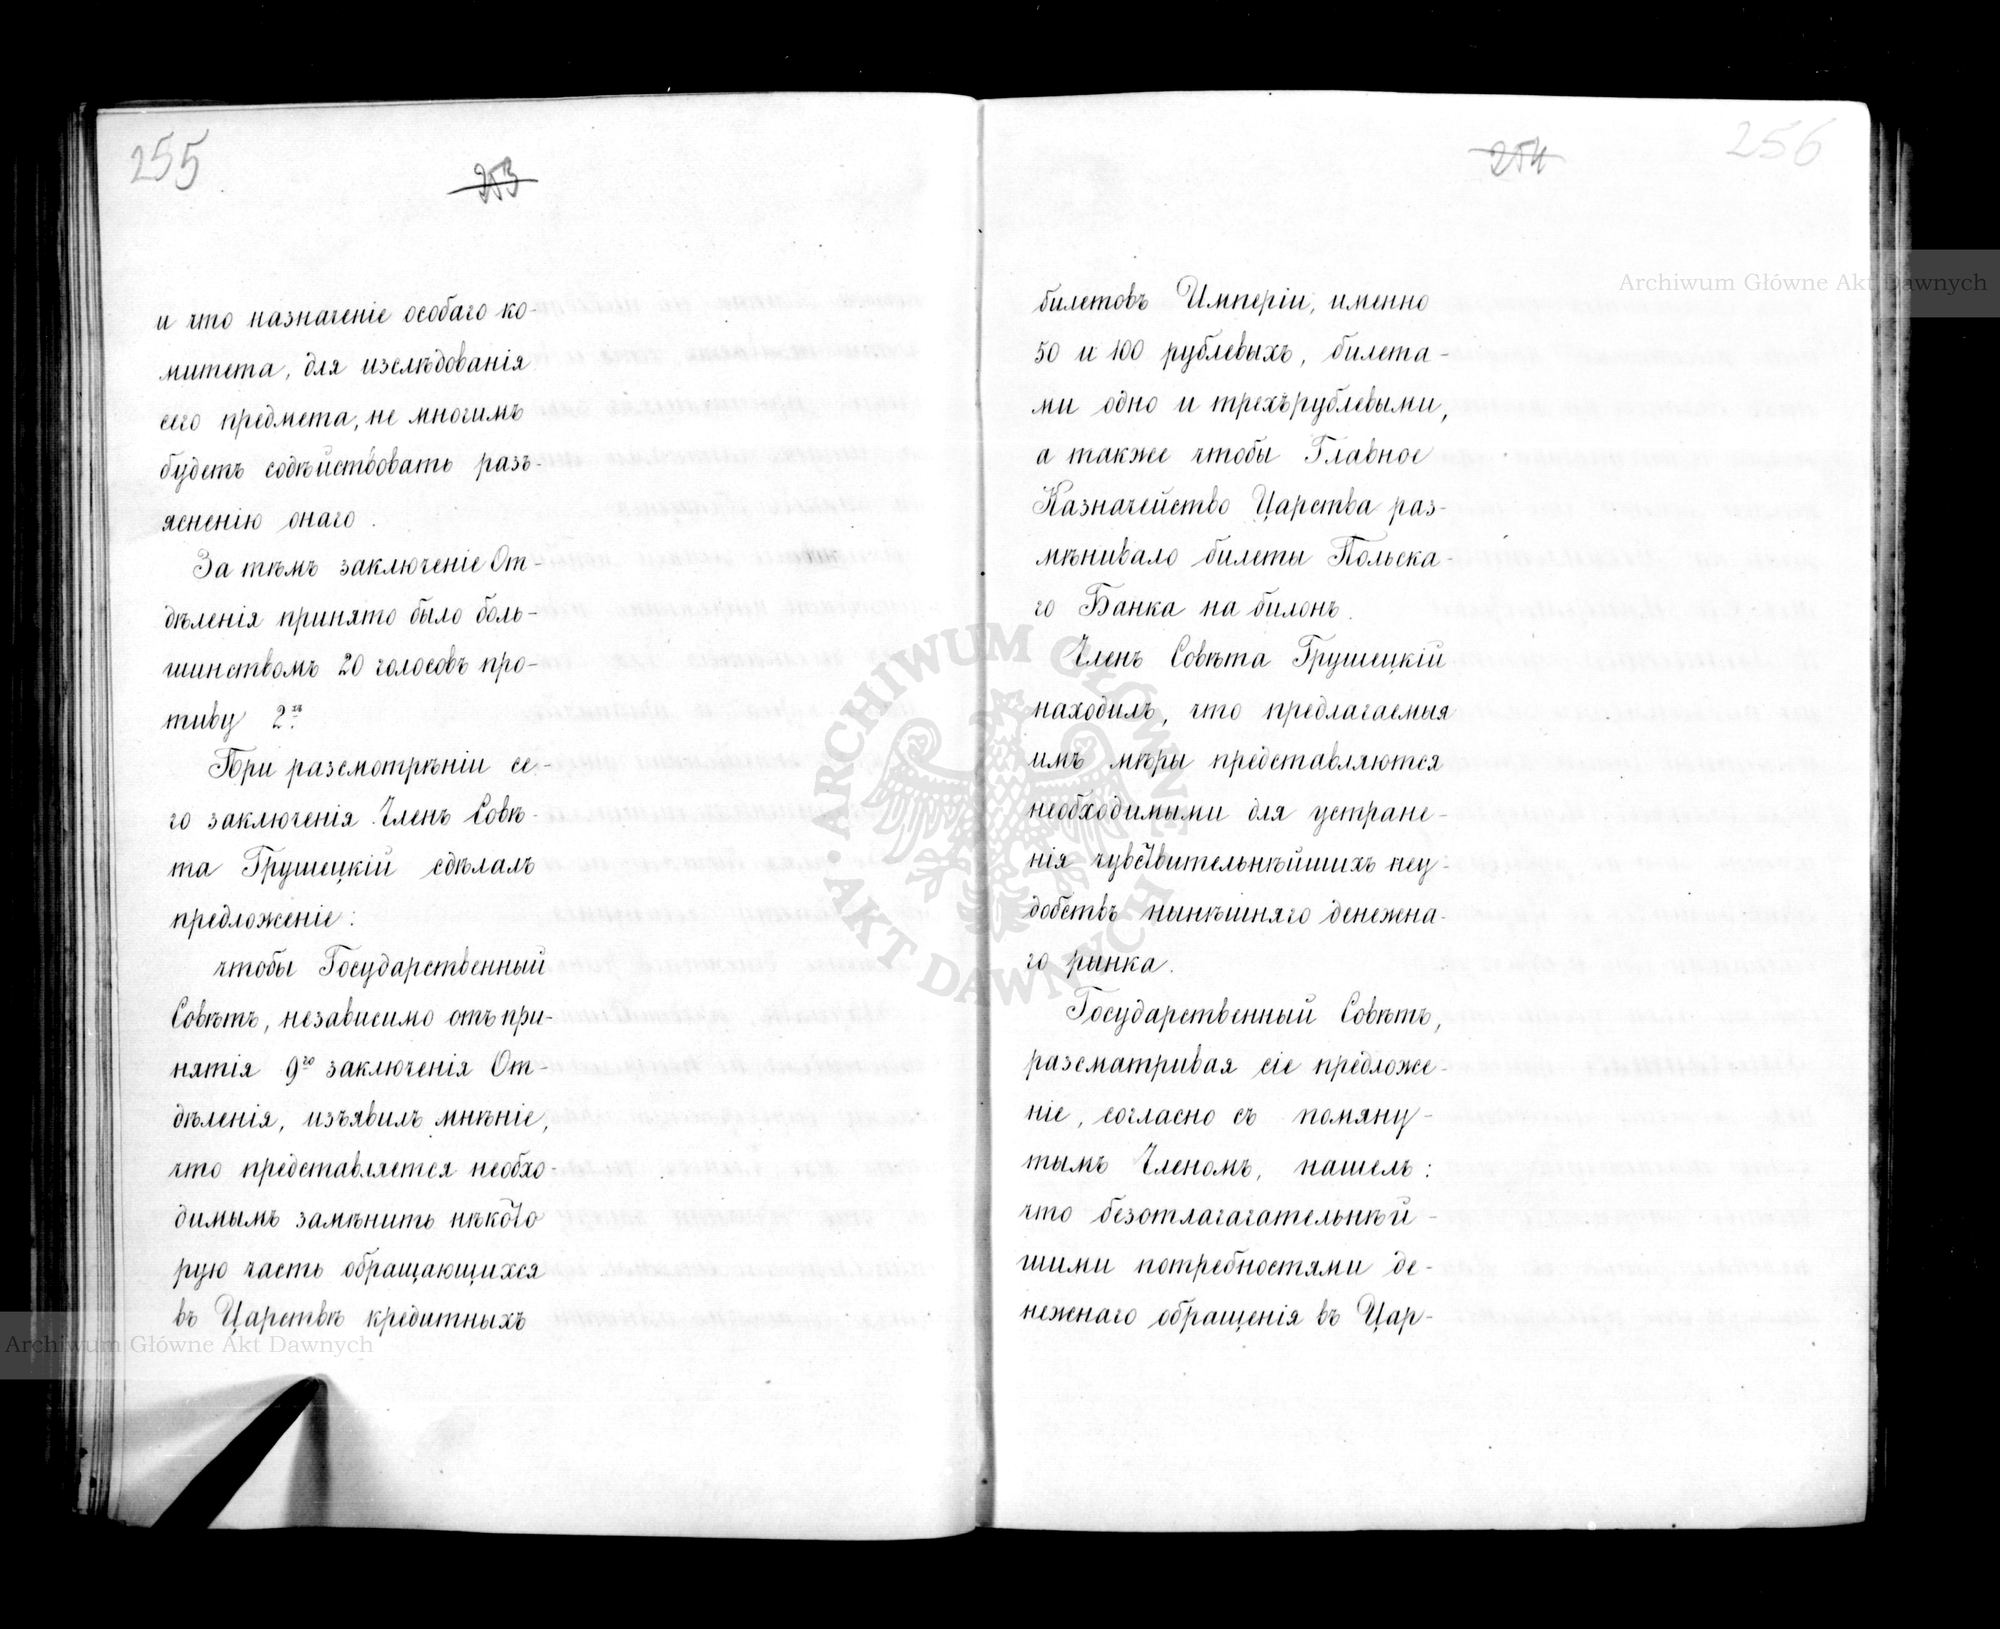 255
253
и что назначеніе особаго ко-
митета, для изслѣдованія
сего предмета, не многимъ
будетъ содѣйствовать разъ-
ясненію онаго.
За тѣмъ заключеніе От-
дѣленія принято было боль-
шинствомъ 20 голосовъ про-
тиву 2хъ
При разсмотрѣніи се-
го заключенія Членъ Совѣ-
та Грушецкій сдѣлалъ
предложеніе:
чтобы Государственный
Совѣтъ, независимо отъ при-
нятія 9го заключенія От-
дѣленія, изъявилъ мнѣніе,
что представляется необхо-
димымъ замѣнить нѣкото
рую часть обращающихся
въ Царствѣ кредитныхъ
254
256
билетовъ Имперіи, именно
50 и 100 рублевыхъ, билета-
ми одно и трехърублевыми,
а также чтобы Главное
Казначейство Царства раз-
мѣнивало билеты Польска-
го Банка на билонъ.
Членъ Совѣта Грушецкій
находилъ, что предлагаемыя
имъ мѣры представляются
необходимыми для устране-
нія чувствительнѣйшихъ неу-
добствъ нынѣшняго денежна-
го рынка.
Государственный Совѣтъ,
разсматривая сіе предложе-
ніе, согласно съ помяну-
тымъ Членомъ, нашелъ:
что безотлагагательнѣй-
шими потребностями де-
нежнаго обращенія въ Цар-
Archiwum Główne Akt Dawnych
Archiwum Główne Akt Dawnych
ARCHIWUM GŁÓWNE AKT DAWNYCH